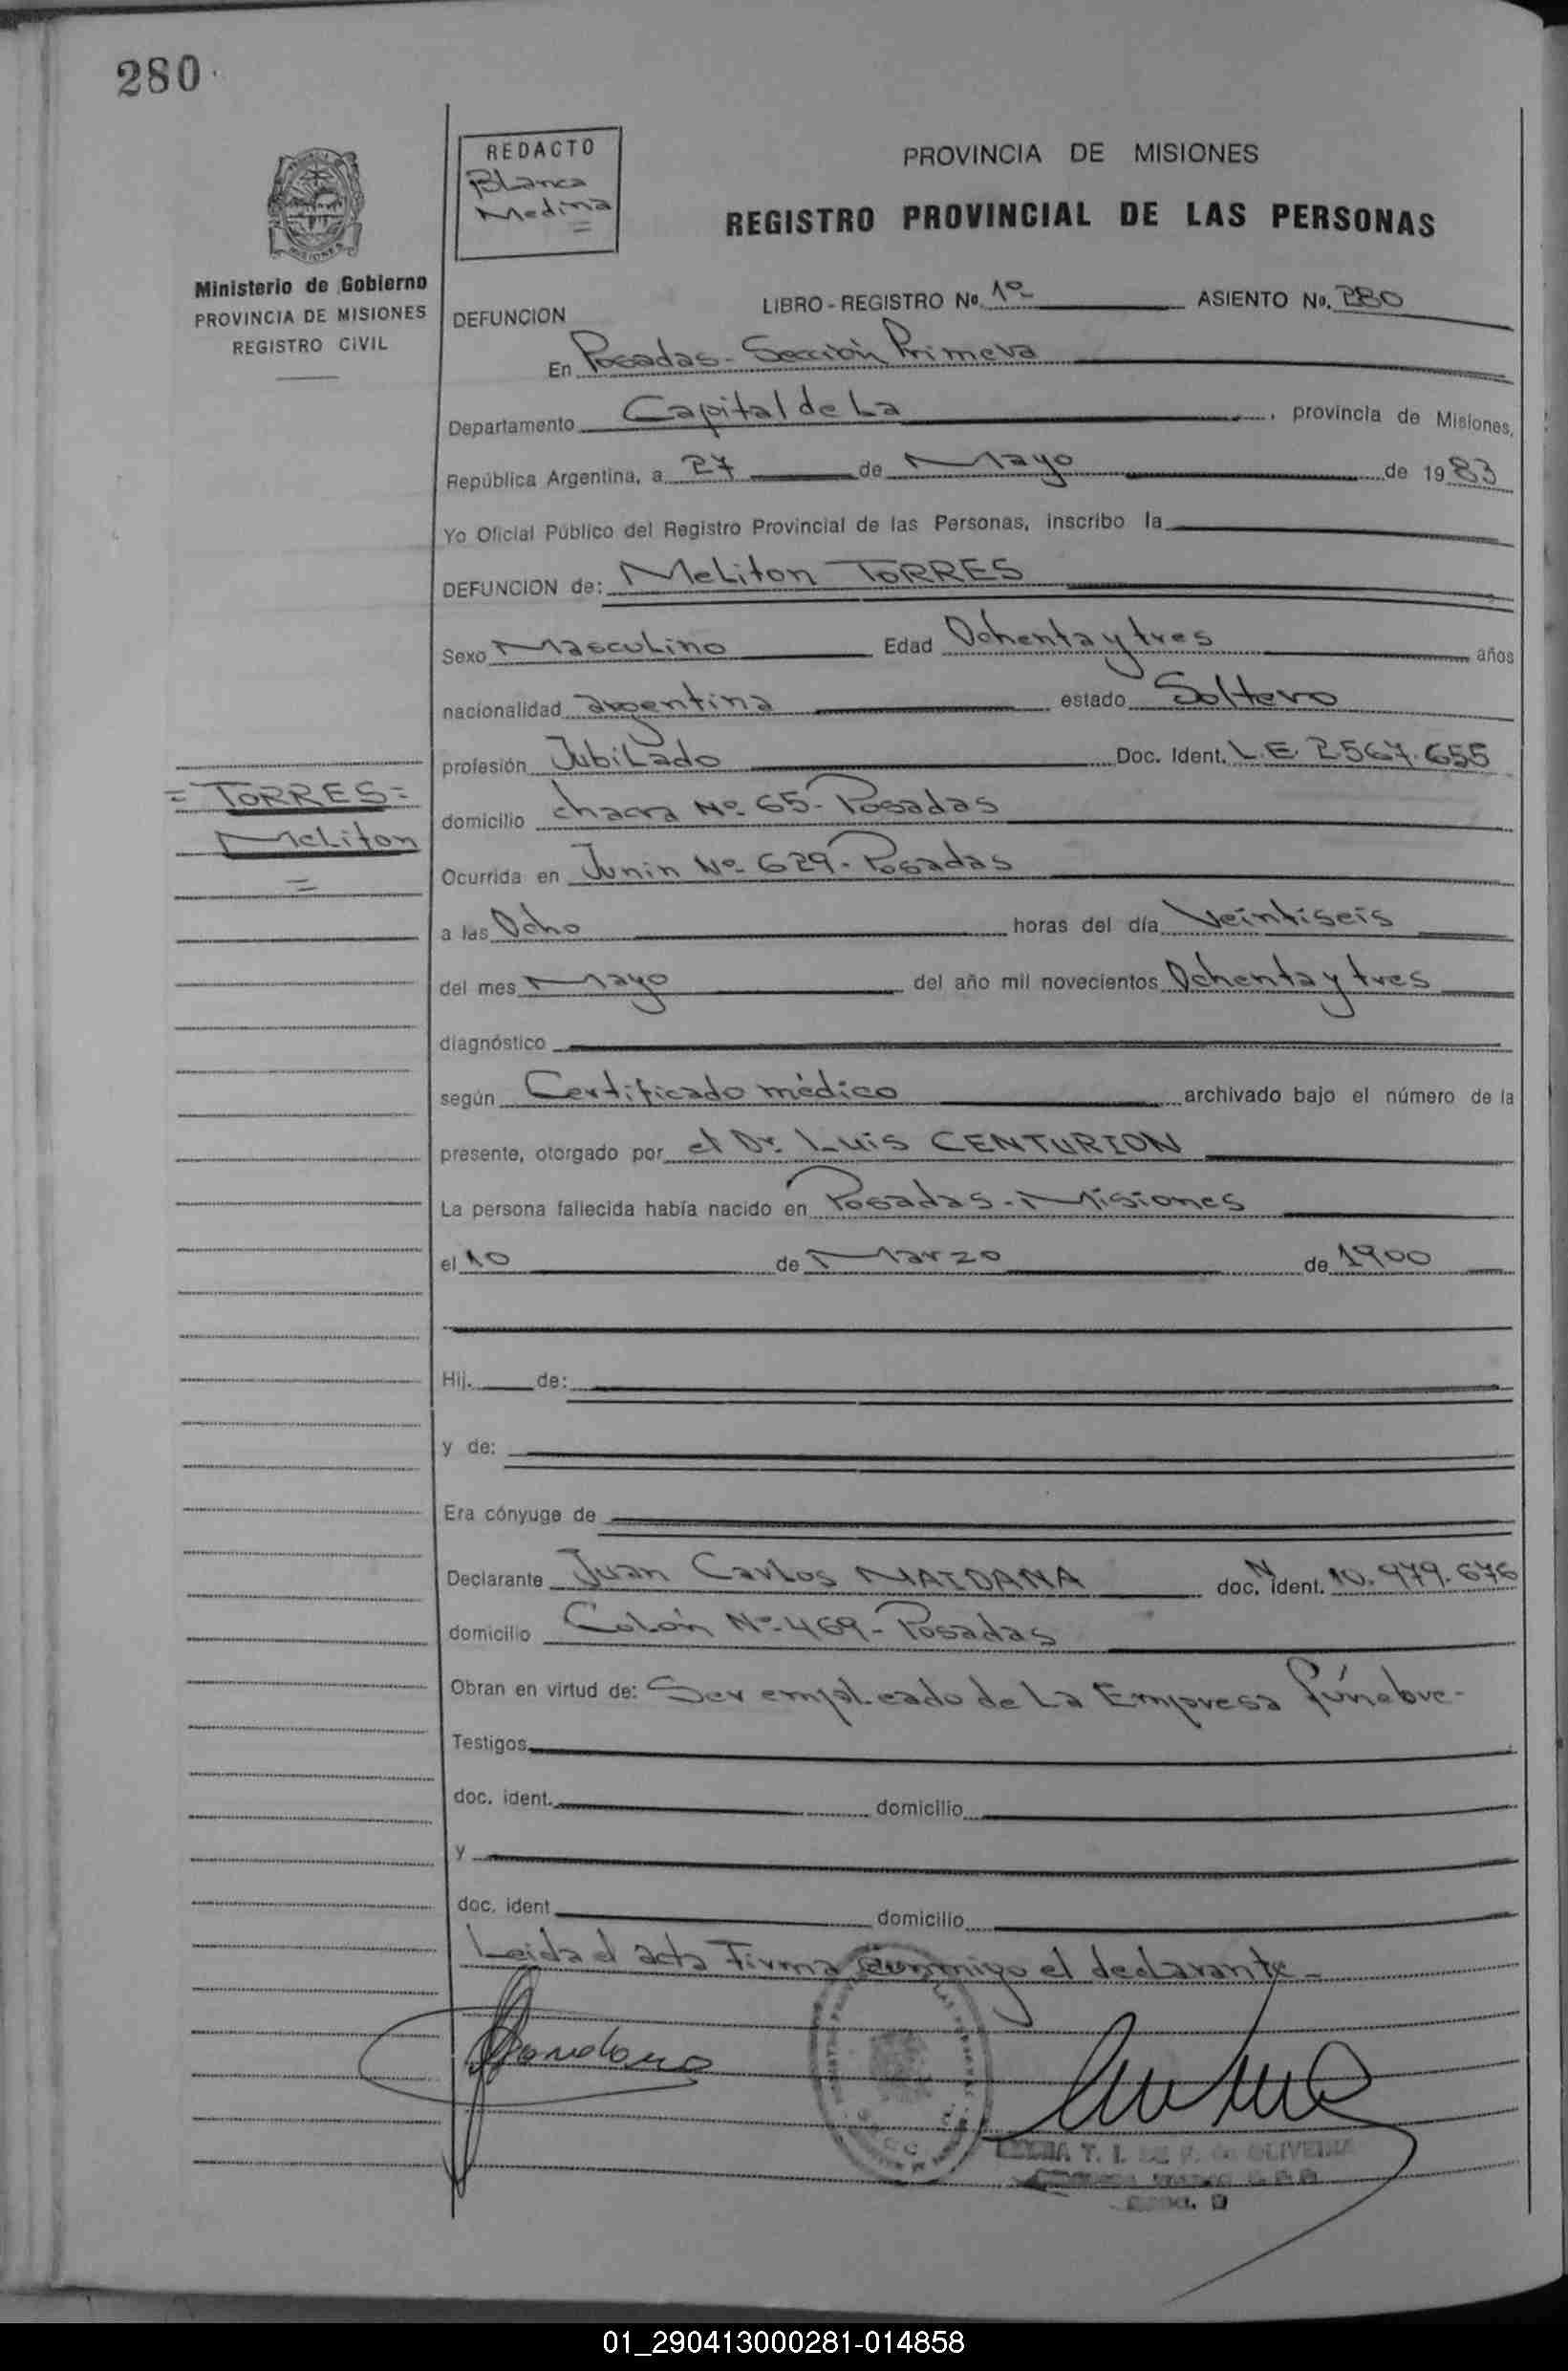 280
REDACTO
Blanca
Medina
PROVINCIA DE MISIONES
REGISTRO PROVINCIAL DE LAS PERSONAS
Ministerio de Gobierno
PROVINCIA DE MISIONES
REGISTRO CIVIL
DEFUNCION
LIBRO - REGISTRO No. 1º ASIENTO No. 280
En Posadas - Sección Primera
Departamento Capital de La , provincia de Misiones,
República Argentina, a 27 de Mayo de 1983
Yo Oficial Público del Registro Provincial de las Personas, inscribo la
DEFUNCION de: Meliton TORRES
Sexo Masculino Edad Ochenta y tres años
nacionalidad argentina estado Soltero
profesión Jubilado Doc. Ident. L.E. 2.567.655
= TORRES =
Meliton
=
domicilio chacra Nº 65 - Posadas
Ocurrida en Junin Nº 629 - Posadas
a las Ocho horas del día Veintiseis
del mes Mayo del año mil novecientos Ochenta y tres
diagnóstico
según Certificado médico archivado bajo el número de la
presente, otorgado por el Dr. Luis CENTURION
La persona fallecida había nacido en Posadas - Misiones
el 10 de Marzo de 1900
Hij. de:
y de:
Era cónyuge de
Declarante Juan Carlos MAIDANA doc. N ident. 10.979.676
domicilio Colón Nº 469 - Posadas
Obran en virtud de: Ser empleado de La Empresa fúnebre -
Testigos
doc. ident. domicilio
y
doc. ident domicilio
Leida el acta Firma conmigo el declarante -
T. I. DE OLIVEIRA
01_290413000281-014858